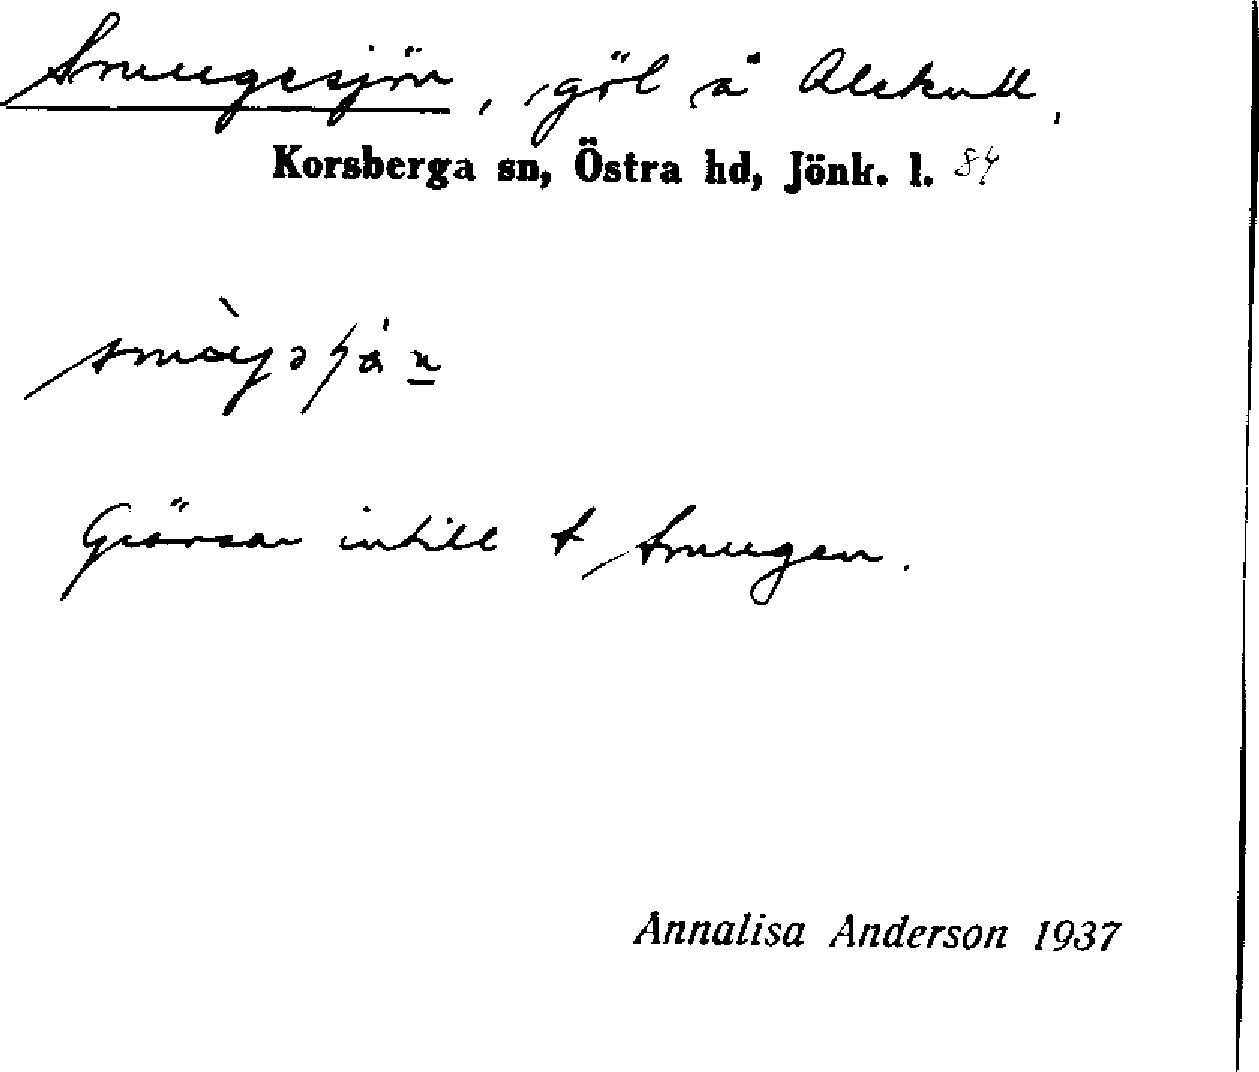 Smugesjön, göl å Alekull,
Korsberga sn, Östra hd, Jönk. l. 84
Gränsar intill t Smugen.
Annalisa Anderson 1937